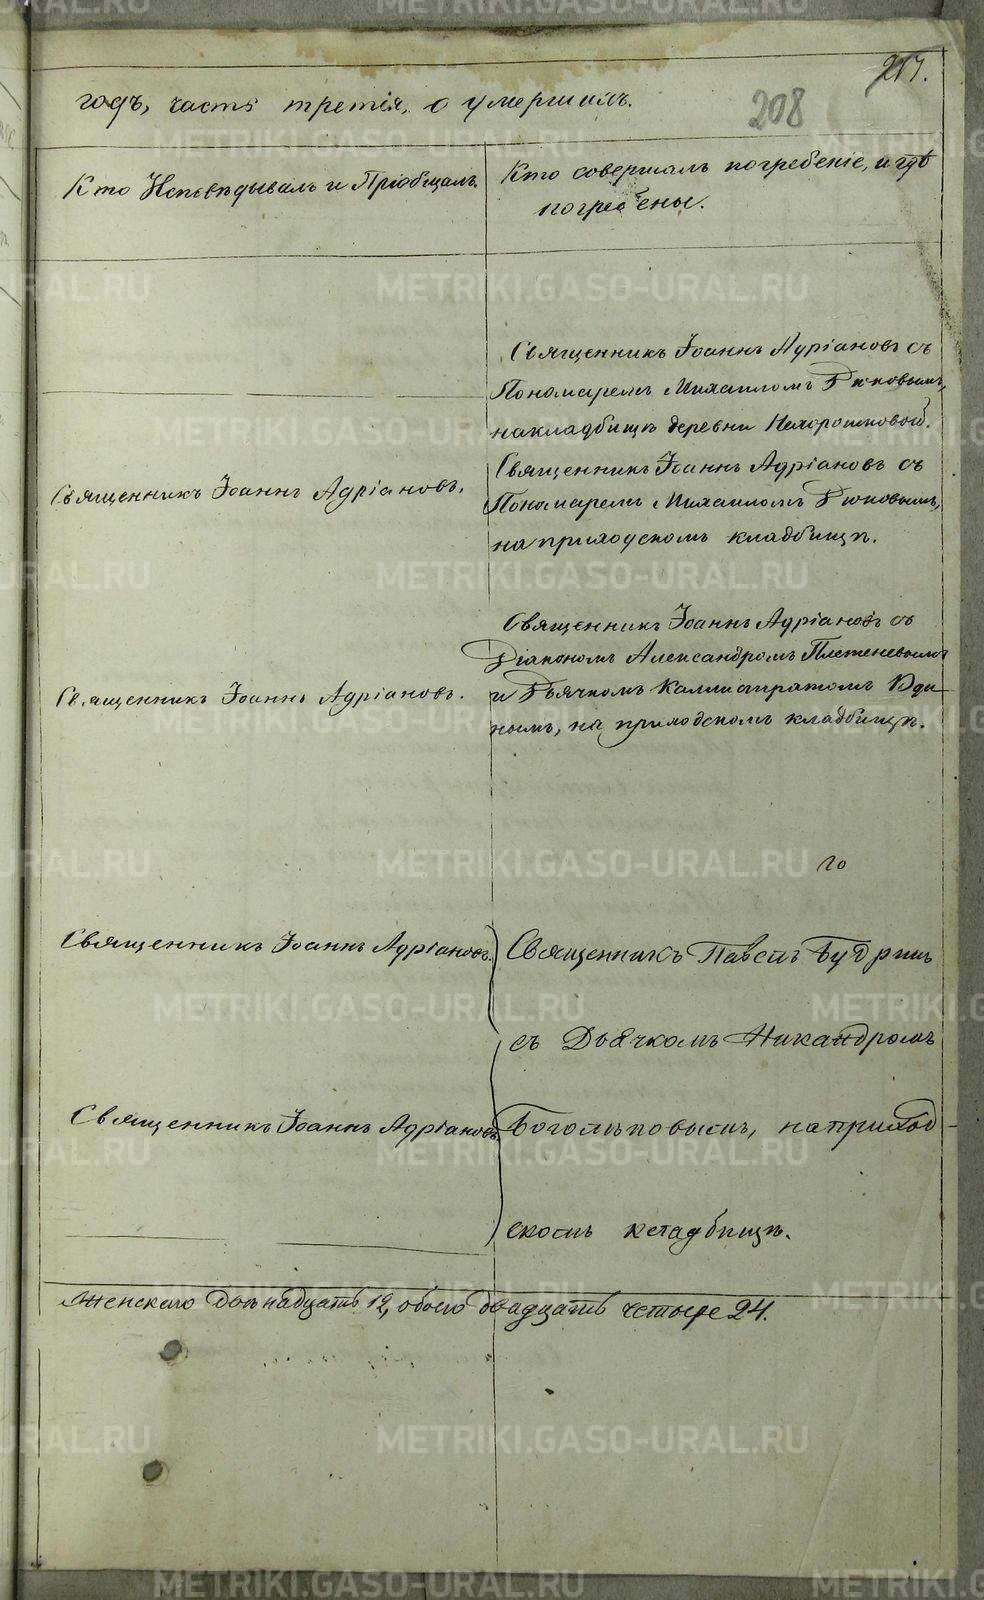 217.
208
годъ, часть третія, о умершихъ.
Кто Исповѣдывалъ и Пріобщалъ.
Кто совершалъ погребеніе, и гдѣ
погребены.
Священникъ Іоаннъ Адріановъ съ
Пономаремъ Михаиломъ
на кладбищѣ деревни Нехорошковой.
Священникъ Іоаннъ Адріановъ.
Священникъ Іоаннъ Адріановъ съ
Пономаремъ Михаиломъ
на приходскомъ кладбищѣ.
Священникъ Іоаннъ Адріановъ.
Священникъ Іоаннъ Адріановъ съ
Діакономъ Александромъ Плетеневымъ
и Дьячкомъ Каллистратомъ Юди-
нымъ, на приходскомъ кладбищѣ.
го
Священникъ Іоаннъ Адріановъ.
Священникъ Павелъ Будринъ
съ Дьячкомъ Никандромъ
Священникъ Іоаннъ Адріановъ.
Боголѣповымъ, на приход-
скомъ кладбищѣ.
Женскаго двѣнадцать 12, обоего двадцать четыре 24.
METRIKI.GASO-URAL.RU